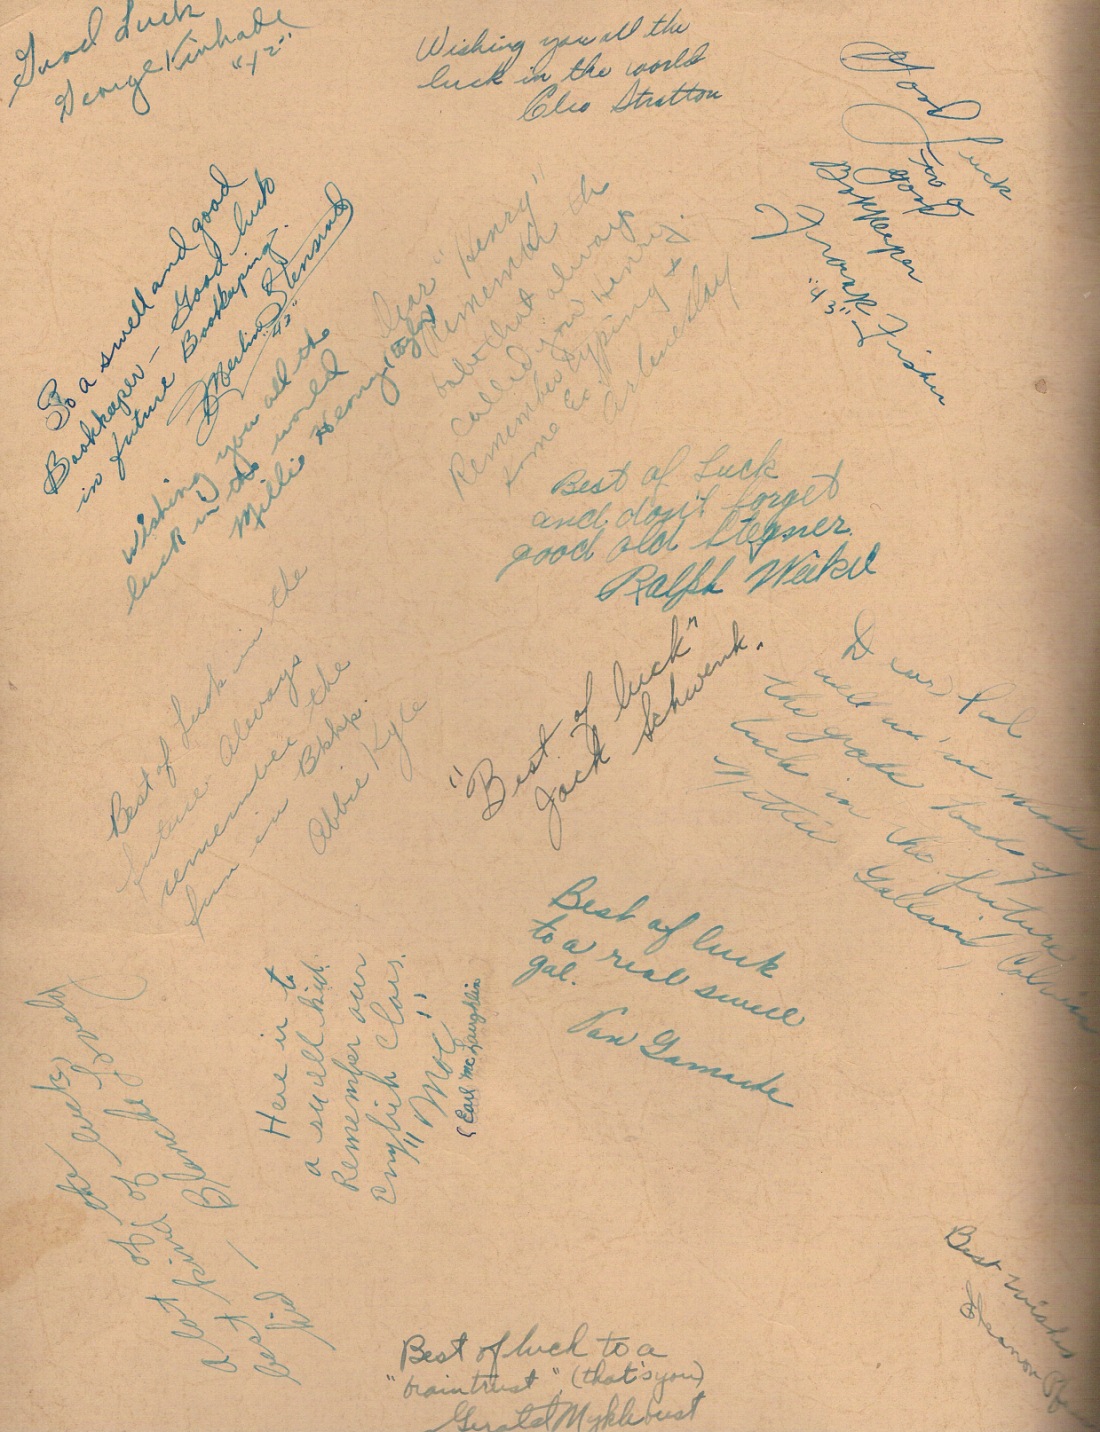 Good Luck
George Kinkade
"42"
Wishing you all the
luck in the world
Cleo Stratton
Good Luck
To a
good
Bokkeeper
Frank Fisher
"43"
To a swell and good
Bookkeper - Good luck
in future Bookkeping.
Merlin
"43"
Wishing you all the
luck in the world
Millie Henry (Taylor)
Dear "Henry"
Remember the
babe that always
called you Henry.
Remember typing &
home Ec.
Arlene Clay
Best of Luck
and don't forget
good old Stegner.
Ralph
Best of Luck in the
future Always
remember the
fun in Bkkp.
Abbie Kyle
"Best of luck"
Jack Schwenk.
Dear Pal
well we've made
the grade loads of
luck in the future
Calvin
Best of luck
to a real swell
gal.
Van Gamache
Here is to
a swell kid.
Remember our
English Class.
"Moc"
(Earl McLaughlin
A lot of luck
kind of
best
kid
Blanche
Best wishes
Best of luck to a
"braintrust", (that's you)
Gerald Myklebust